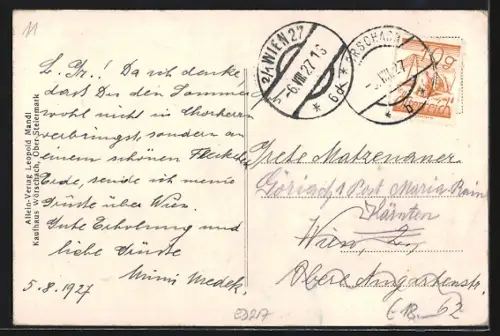 11
L. Gr.! Da ich denke
dast Du den Sommer
wohl nicht in Chorherrn
verbringst, sondern an
einem schönen Fleckchen
Erde, sende ich meine
Grüße über Wien.
Gute Erholung und
liebe Grüße
Mimi Medek.
5.8.1927
Allein-Verlag Leopold Mandl
Kaufhaus Wörschach, Ober-Steiermark
2/1 WIEN 27
-6.VIII.27 16
* 6d *
RSCHACH
VIII.27
* b *
Grete Matzenauer
Göriach, Post Maria Rain
Kärnten
Wien, 2.,
Obere Augartenstr.
62
ED217